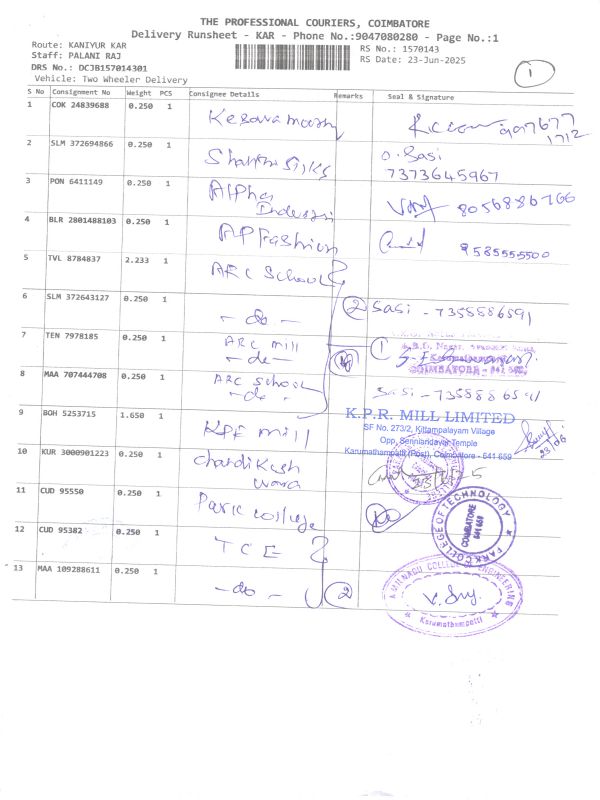 THE PROFESSIONAL COURIERS, COIMBATORE
Delivery Runsheet - KAR - Phone No.:9047080280 - Page No.:1
Route: KANIYUR KAR
Staff: PALANI RAJ
DRS No.: DCJB157014301
Vehicle: Two Wheeler Delivery
RS No.: 1570143
RS Date: 23-Jun-2025
1
S No Consignment No Weight PCS Consignee Details Remarks Seal & Signature
1 COK 24839688 0.250 1 Kesava
2 SLM 372694866 0.250 1 Shanthi Silks O. Sasi
7373645967
3 PON 6411149 0.250 1 Alpha 8056886766
4 BLR 2801488103 0.250 1 AP Fashion 9585555500
5 TVL 8784837 2.233 1 ARC School
6 SLM 372643127 0.250 1 - do - 2 Sasi - 7355886591
7 TEN 7978185 0.250 1 ARC mill
- do - 1
COIMBATORE
8 MAA 707444708 0.250 1 ARC School
- do - Sasi - 73588865
9 BOH 5253715 1.650 1 KPR mill
K.P.R. MILL LIMITED
SF No. 273/2, Kittampalayam Village
Opp, Senniandavar Temple
Karumathampatti (Post), Coimbatore - 641 659
23/06
10 KUR 3000901223 0.250 1
11 CUD 95550 0.250 1 Park college
PARK COLLEGE OF TECHNOLOGY
COIMBATORE
641 659
12 CUD 95382 0.250 1 TCE
13 MAA 109288611 0.250 1 - do - 2
COLLEGE OF ENGINEERING
Karumathampatti